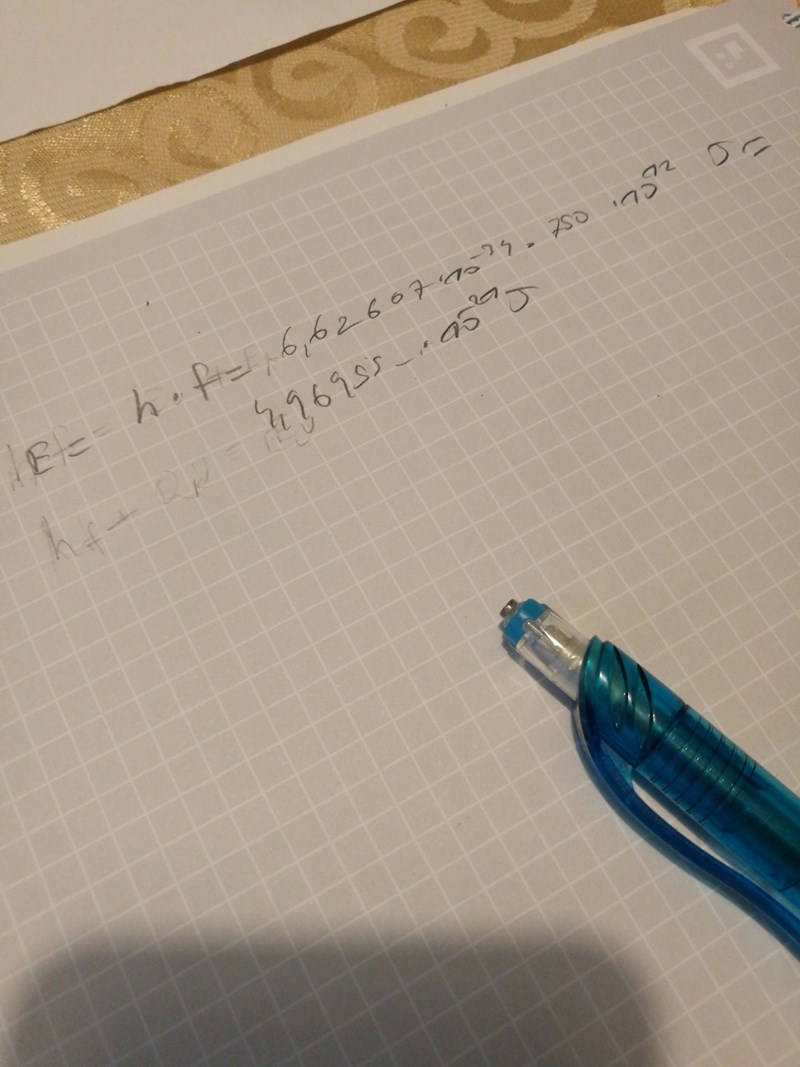 E = h · f = 6,62607 · 10^-34 · 750 · 10^12 J =
4,96955 · 10 J
hf +